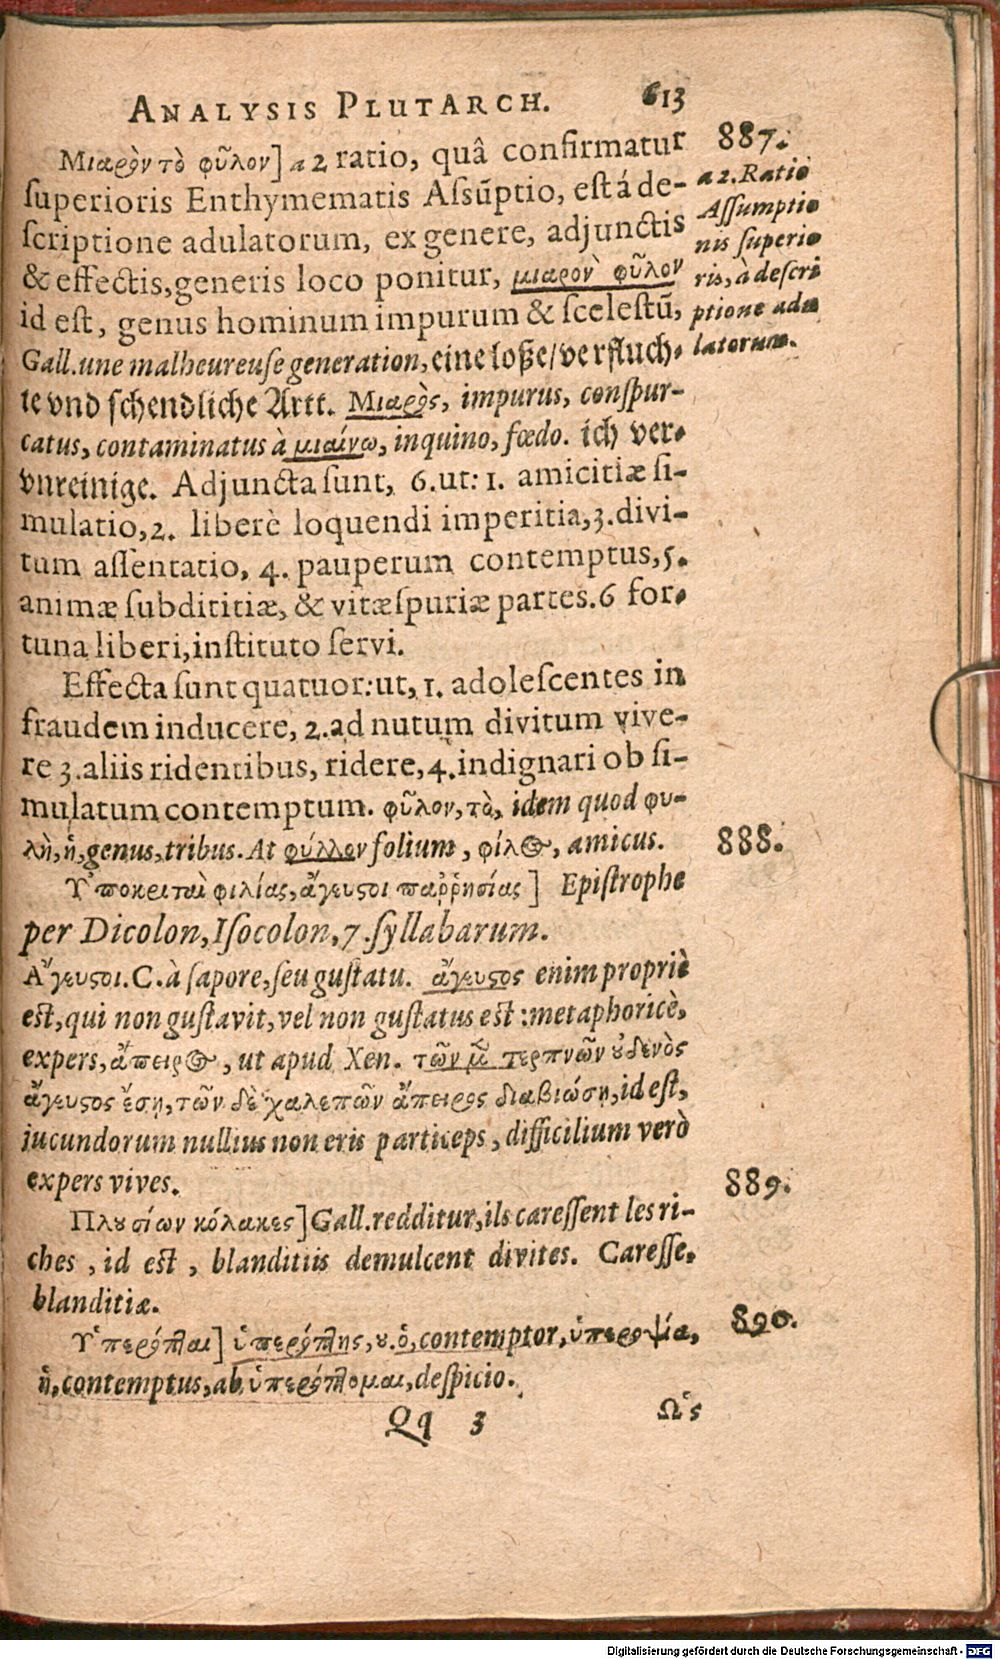 ANALYSIS PLUTARCH. 613
Μιαρὸν τὸ φῦλον] a 2 ratio, quâ confirmatur
superioris Enthymematis Assũptio, est á de-
scriptione adulatorum, ex genere, adjunctis
& effectis, generis loco ponitur, μιαρον̀ φῦλον
id est, genus hominum impurum & scelestũ,
Gall. une malheureuse generation, eine loße/ verfluch-
te vnd schendliche Artt. Μιαρὸς, impurus, conspur-
catus, contaminatus à μιαίνω, inquino, fœdo. ich ver-
vnreinige. Adjuncta sunt, 6. ut: 1. amicitiæ si-
mulatio, 2. liberè loquendi imperitia, 3. divi-
tum assentatio, 4. pauperum contemptus, 5.
animæ subdititiæ, & vitæ spuriæ partes. 6 for-
tuna liberi, instituto servi.
Effecta sunt quatuor: ut, 1. adolescentes in
fraudem inducere, 2. ad nutum divitum vive-
re 3. aliis ridentibus, ridere, 4. indignari ob si-
mulatum contemptum. φῦλον, τὸ, idem quod φυ-
λὴ, ἡ, genus, tribus. At φύλλον folium, φίλος, amicus.
Ὑποκριταὶ φιλίας, ἄγευστοι παῤῥησίας] Epistrophe
per Dicolon, Isocolon, 7. syllabarum.
Ἄγευστοι. C. à sapore, seu gustatu. ἄγευστος enim propriè
est, qui non gustavit, vel non gustatus est: metaphoricè,
expers, ἄπειρος, ut apud Xen. τῶν μὲν τερπνῶν οὐδενὸς
ἄγευστος ἔσῃ, τῶν δὲ χαλεπῶν ἄπειρος διαβιώσῃ, id est,
jucundorum nullius non eris particeps, difficilium verò
expers vives.
Πλουσίων κόλακες] Gall. redditur, ils caressent les ri-
ches, id est, blanditiis demulcent divites. Caresse,
blanditiæ.
Ὑπερόπται] ὑπερόπτης, ου. ὁ, contemptor, ὑπεροψία,
ἡ, contemptus, ab ὑπερόπτομαι, despicio.
Qq 3 Ὡς
887.
a 2. Ratio
Assumptio
nis superio
ris, à descri
ptione adu
latorum.
888.
889.
890.
Digitalisierung gefördert durch die Deutsche Forschungsgemeinschaft - DFG